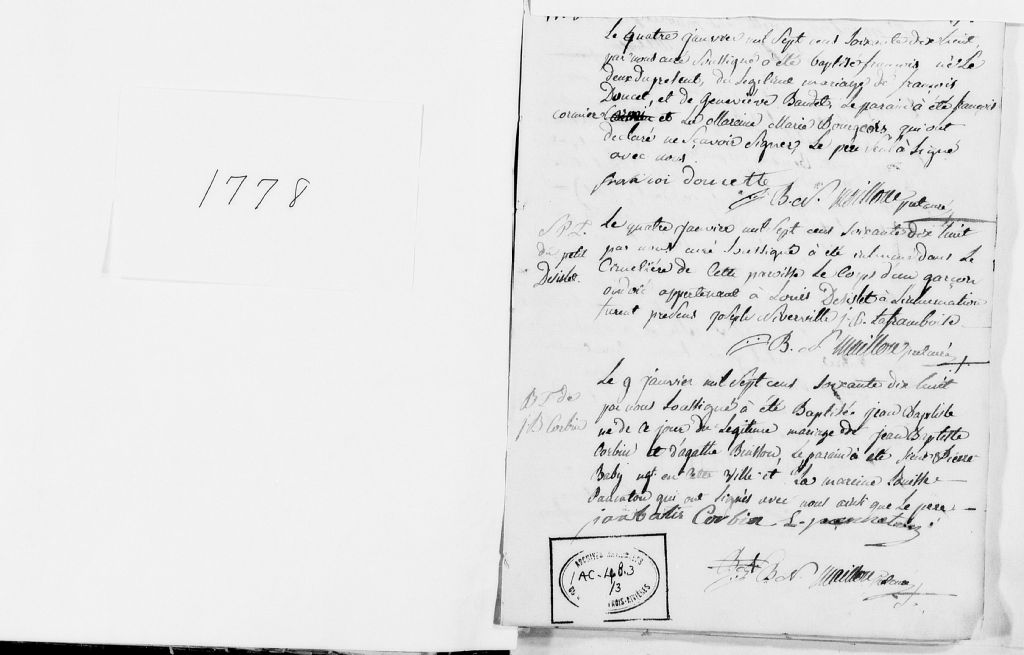 1778
Le quatre janvier mil Sept cens Soixante dix huit,
par nous curé Soussigné à été baptisé françois né Le
deux du present, du legitime mariage de françois
Doucet, et de Geneviève Baudet, Le parain à été françois
cormier et La Mareine Marie Bourgeois, qui ont
declaré ne Sçavoir Signer, Le père Seul à Signé
avec nous.
fransoi doucette
B. N. Maillou
S. P. L.
du petit
Desislet.
Le quatre janvier mil Sept cens Soixante dix huit
par nous curé Soussigné à été inhumé dans Le
Cimetière de Cette paroisse Le Corps d'un garçon
ondoié appartenant à Louis Desislet à L'inhumation
furent presens joseph Niverville j. B. Laframboise
B. N. Maillou
B. T. de
j B Corbin
Le 9 janvier mil Sept cens Soixante dix huit
par nous Soussigné à été Baptisé jean Baptiste
né de ce jour du Legitime mariage de jean Baptiste
Corbin et d'agathe Buisson, Le parain à été Pierre
Baby en Ville et La mareine
qui ont Signés avec nous ainsi que Le père
Corbin L.
B. N. Maillou
ARCHIVES NATIONALES
AC-483
/3
TROIS-RIVIERES